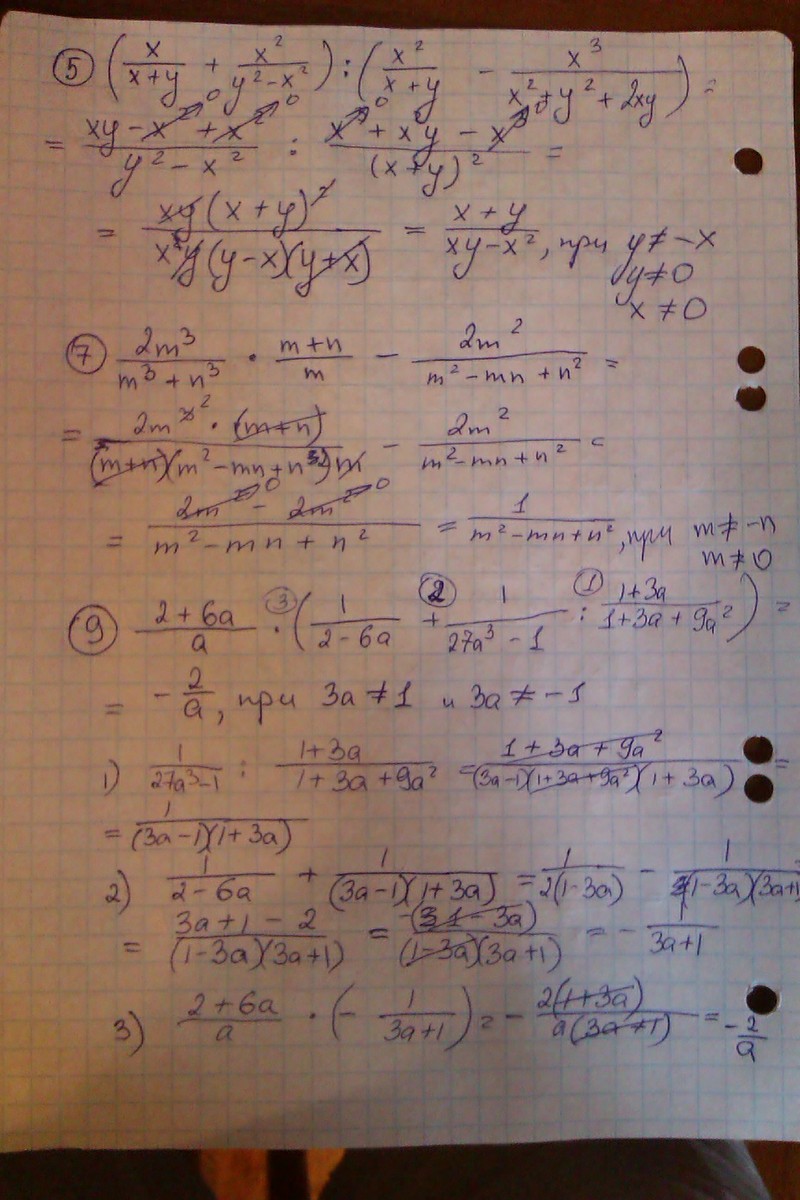 ⑤ (x/(x+y) + x²/(y²-x²)) : (x²/(x+y) - x³/(x²+y²+2xy)) =
= (xy-x²+x²)/(y²-x²) : (x³+x²y-x³)/(x+y)² =
= xy(x+y)²/(x²y(y-x)(y+x)) = (x+y)/(xy-x²), при y≠-x
y≠0
x≠0
⑦ 2m³/(m³+n³) · (m+n)/m - 2m²/(m²-mn+n²) =
= 2m³² · (m+n)/((m+n)(m²-mn+n²)m) - 2m²/(m²-mn+n²) =
= (2m²-2m²)/(m²-mn+n²) = 1/(m²-mn+n²), при m≠-n
m≠0
⑨ (2+6a)/a ·③ (1/(2-6a) +② 1/(27a³-1) :① (1+3a)/(1+3a+9a²)) =
= -2/a, при 3a≠1 и 3a≠-1
1) 1/(27a³-1) : (1+3a)/(1+3a+9a²) = (1+3a+9a²)/((3a-1)(1+3a+9a²)(1+3a)) =
= 1/((3a-1)(1+3a))
2) 1/(2-6a) + 1/((3a-1)(1+3a)) = 1/(2(1-3a)) - 1/((1-3a)(3a+1)
= (3a+1-2)/((1-3a)(3a+1)) = -(1-3a)/((1-3a)(3a+1)) = -1/(3a+1)
3) (2+6a)/a · (-1/(3a+1)) = -2(1+3a)/(a(3a+1)) = -2/a